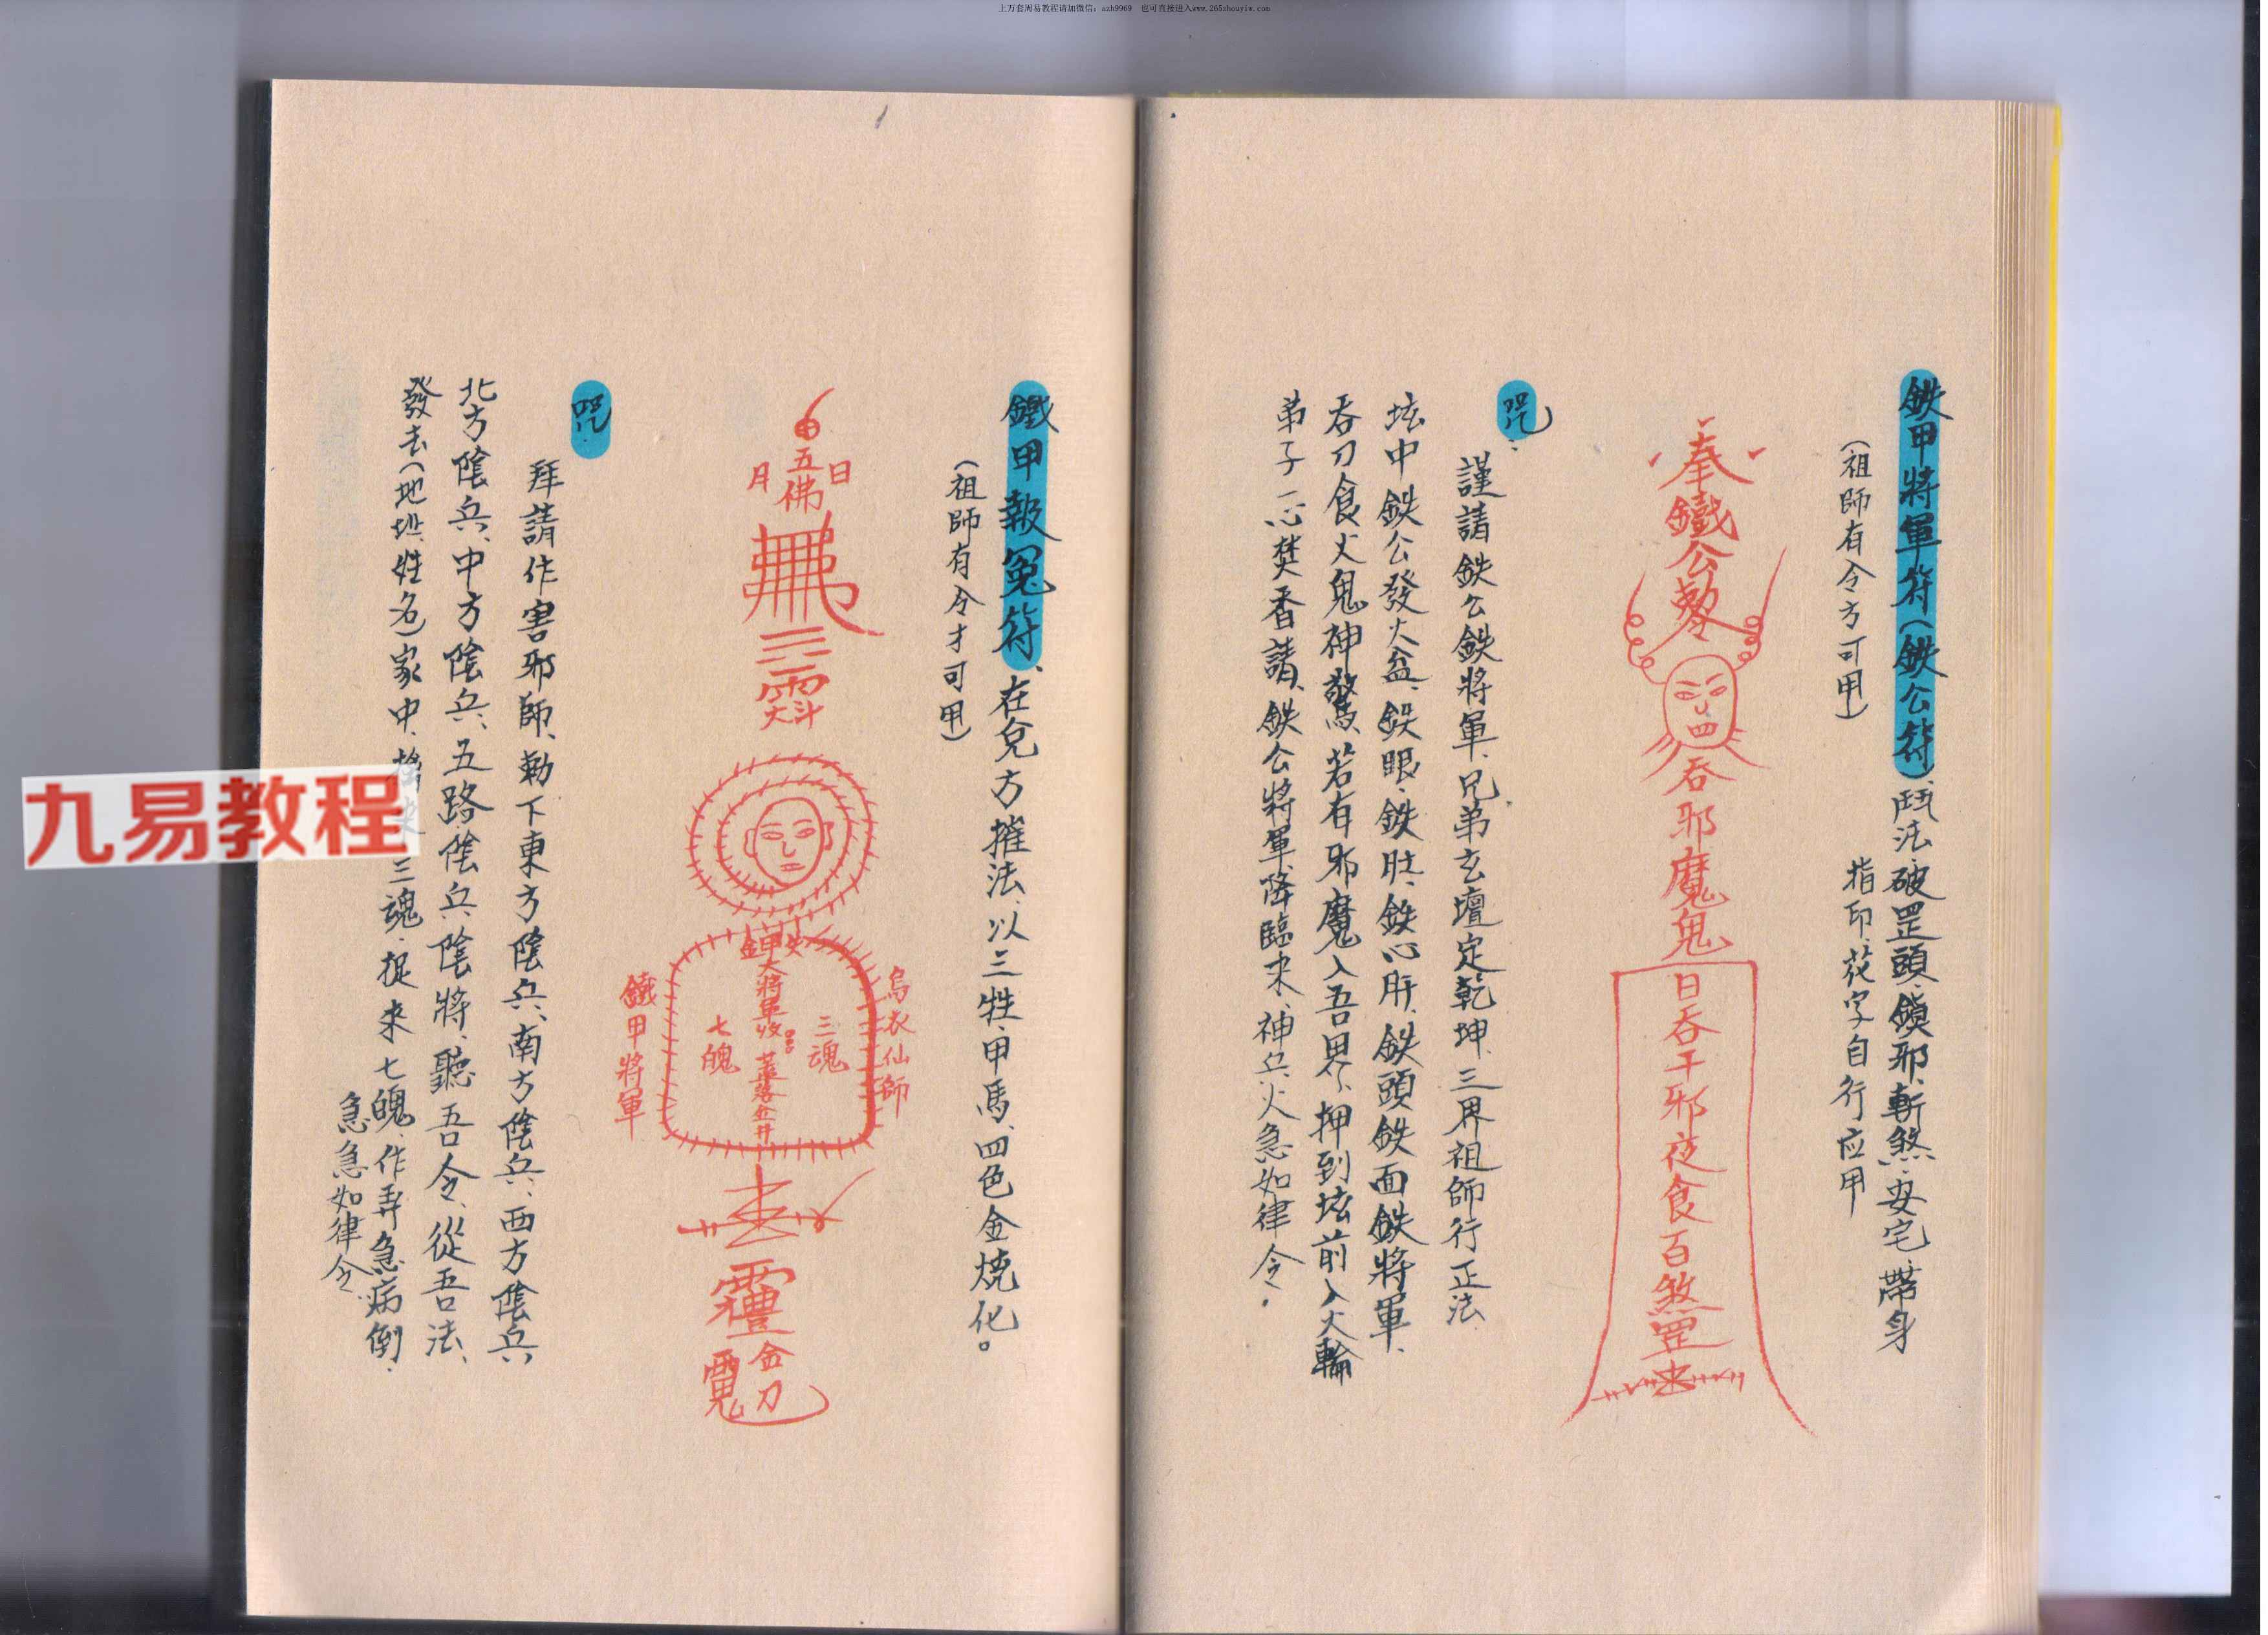 上万套周易教程请加微信：azh9969　也可直接进入www.265zhouyiw.com
鉄甲將軍符（鉄公符）、鬥法、破罡頭、鎖邪、斬煞、安宅、帶身
（祖師有令方可用）
指印、花字自行应用
奉鐵公勅
四
吞邪魔鬼
日吞千邪夜食百煞罡
咒：
謹請鉄公鉄將軍、兄弟玄壇定乾坤、三界祖師行正法
坛中鉄公發火盆、鉄眼、鉄肚、鉄心肝、鉄頭鉄面鉄將軍、
吞刀食火鬼神驚、若有邪魔入吾界、押到坛前入火輪
弟子一心焚香請、鉄公將軍降臨来、神兵火急如律令。
鐵甲報冤符、在兌方摧法、以三牲、甲馬、四色金燒化。
（祖師有令才可用）
日
五佛
月
烏衣仙師
三魂
七魄
鐵甲將軍
金刀
咒
拜請作害邪師、勅下東方陰兵、南方陰兵、西方陰兵
北方陰兵、中方陰兵、五路陰兵、陰將、聽吾令、從吾法、
發去（地址姓名）家中、三魂、捉来七魄、作弄急病倒、
急急如律令
九易教程